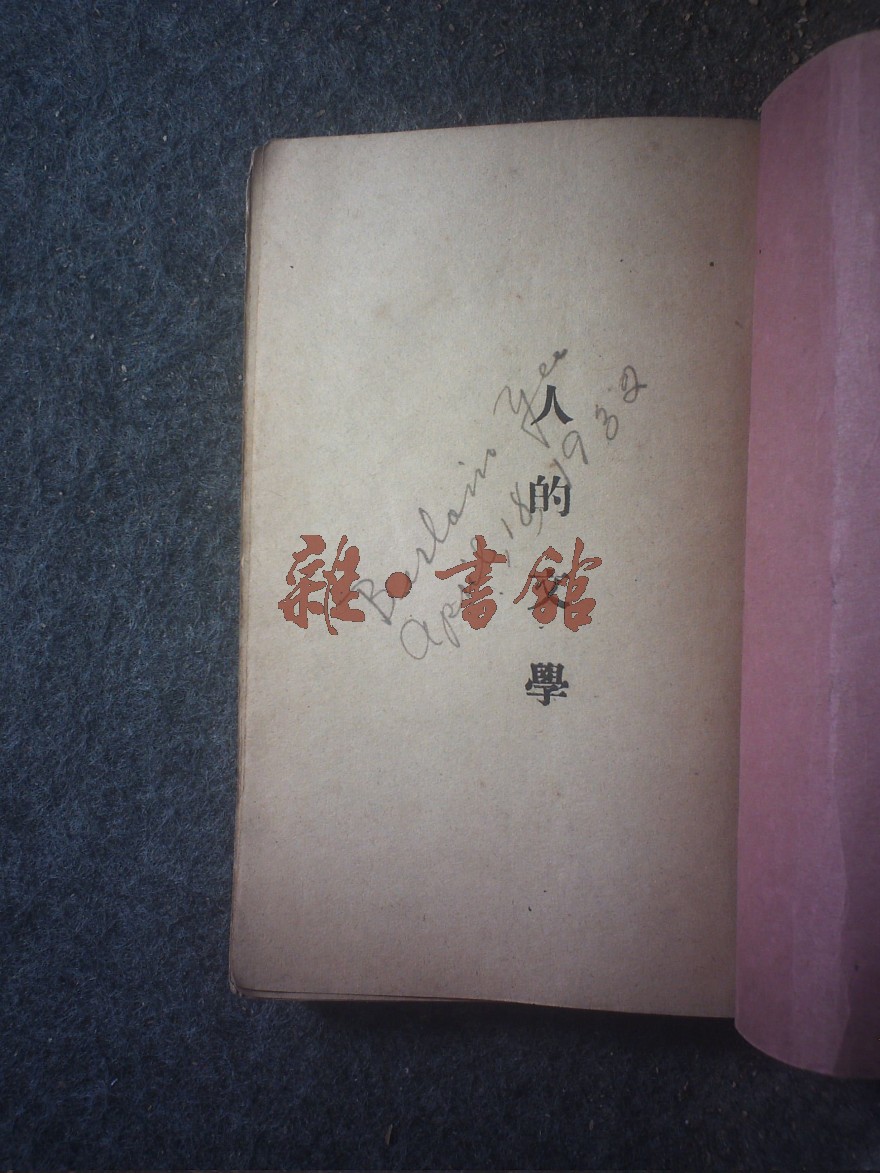 人的文學
Yee
April 18, 1932
雜·書館